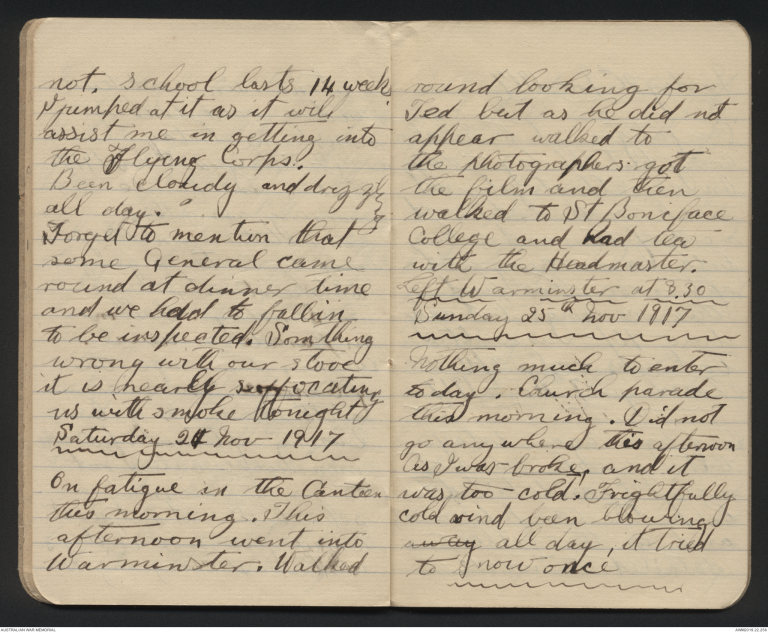 not. School lasts 14 week
I jumped at it as it will
assist me in getting into
the Flying Corps.
Been cloudy and drizzly
all day.
Forget to mention that
some General came
round at dinner time
and we had to fall in
to be inspected. Somthing
wrong with our stove
it is nearly suffocating
us with smoke tonight
Saturday 24 Nov 1917
On fatigue in the Canteen
this morning. This
afternoon went into
Warminster. Walked
round looking for
Ted but as he did not
appear walked to
the photographers got
the film and then
walked to St Boniface
College and had tea
with the Headmaster.
Left Warminster at 8.30
Sunday 25th Nov 1917
Nothing much to enter
today. Church parade
this morning. Did not
go anywhere this afternoon
as I was broke, and it
was too cold. Frightfully
cold wind been blowing
away all day, it tried
to snow once
AUSTRALIAN WAR MEMORIAL
AWM2016.22.256